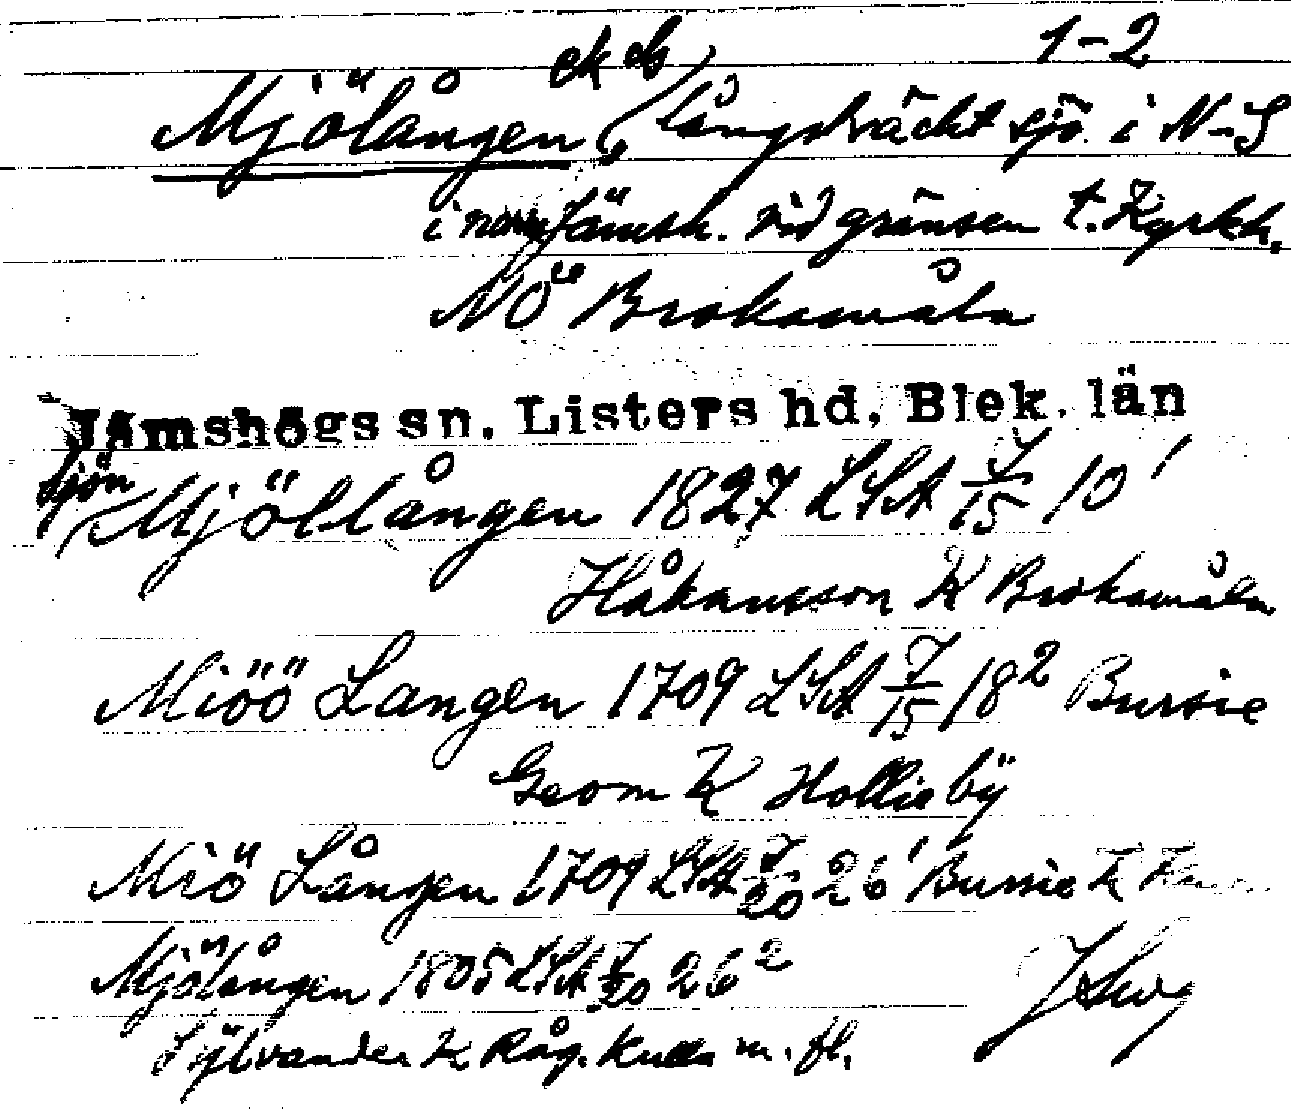 ek ds 1-2
Mjölången, långsträckt sjö i N-S
i norr Jämsh. vid gränsen t. Kyrkh.
NÖ Brokamåla
Jämshögs sn. Listers hd. Blek. län
Sjön Mjöllången 1827 LSA J/15 10¹
Håkansson K Brokamåla
Miöö Langen 1709 LSA J/15 18² Bursie
Geom K Hollisbÿ
Miö Lången 1709 LSA J/20 26¹ Bursie K
Mjölången 1805 LSA J/20 26²
Sylvander K Råg. kulla m. fl.